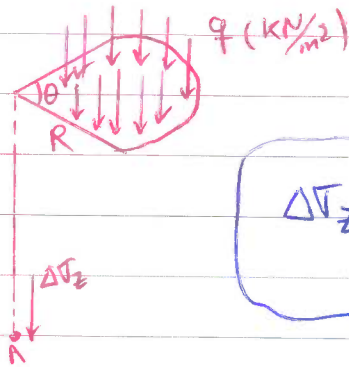 q (KN/m²)
θ
R
Δσz
Δσz
A